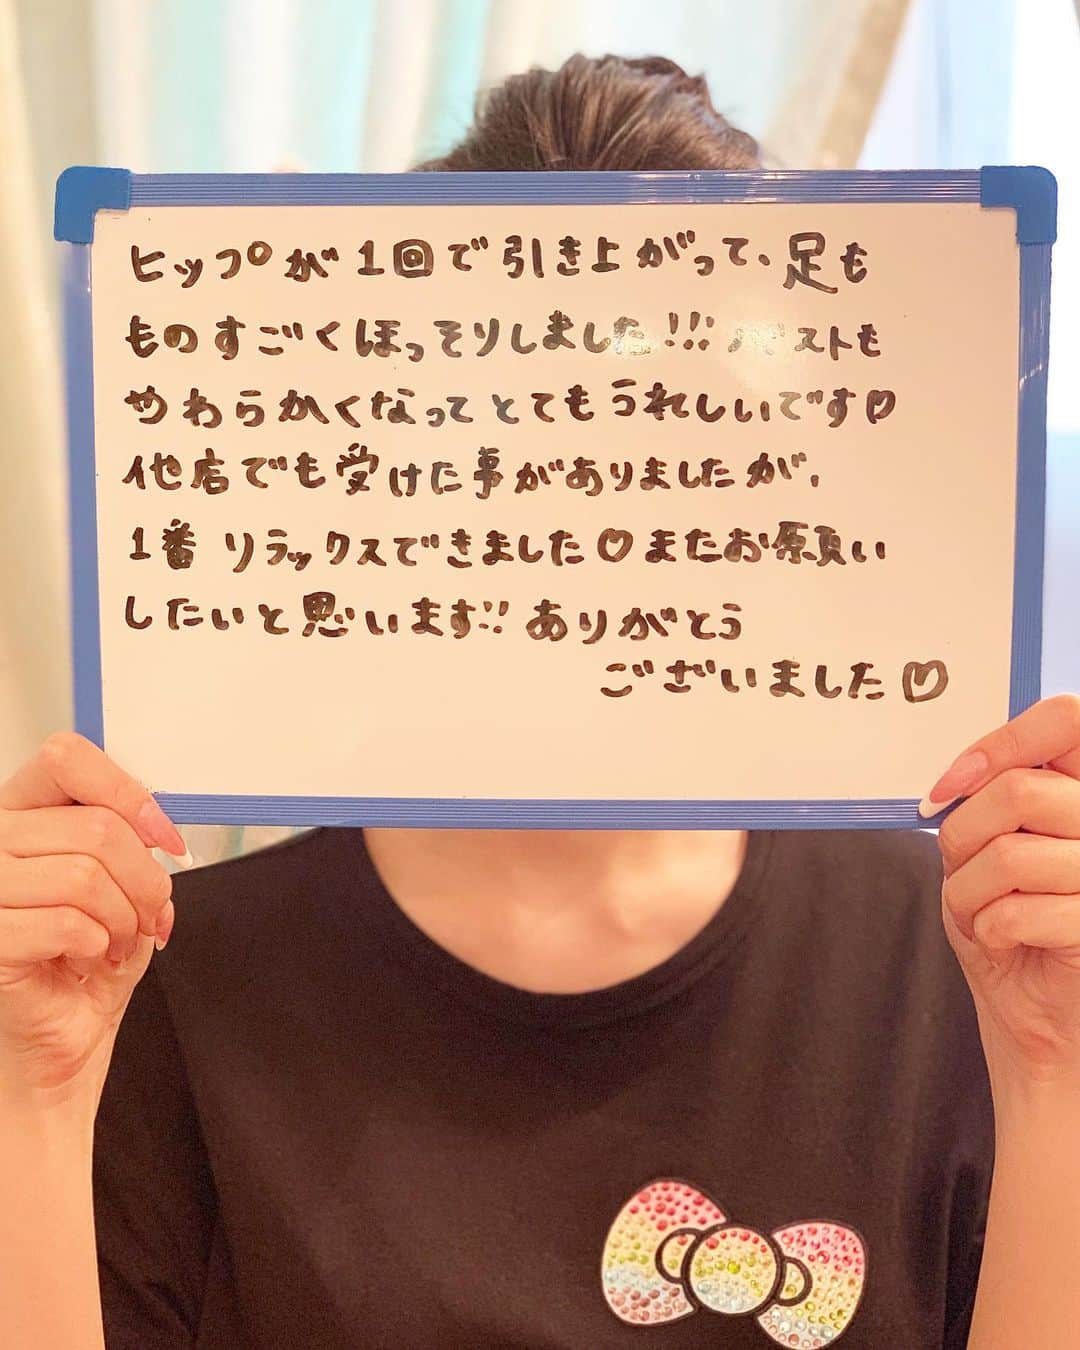 ヒップが1回で引き上がって、足も
ものすごくほっそりしました!!! バストも
やわらかくなってとてもうれしいです♡
他店でも受けた事がありましたが、
1番 リラックスできました♡またお願い
したいと思います!! ありがとう
ございました♡